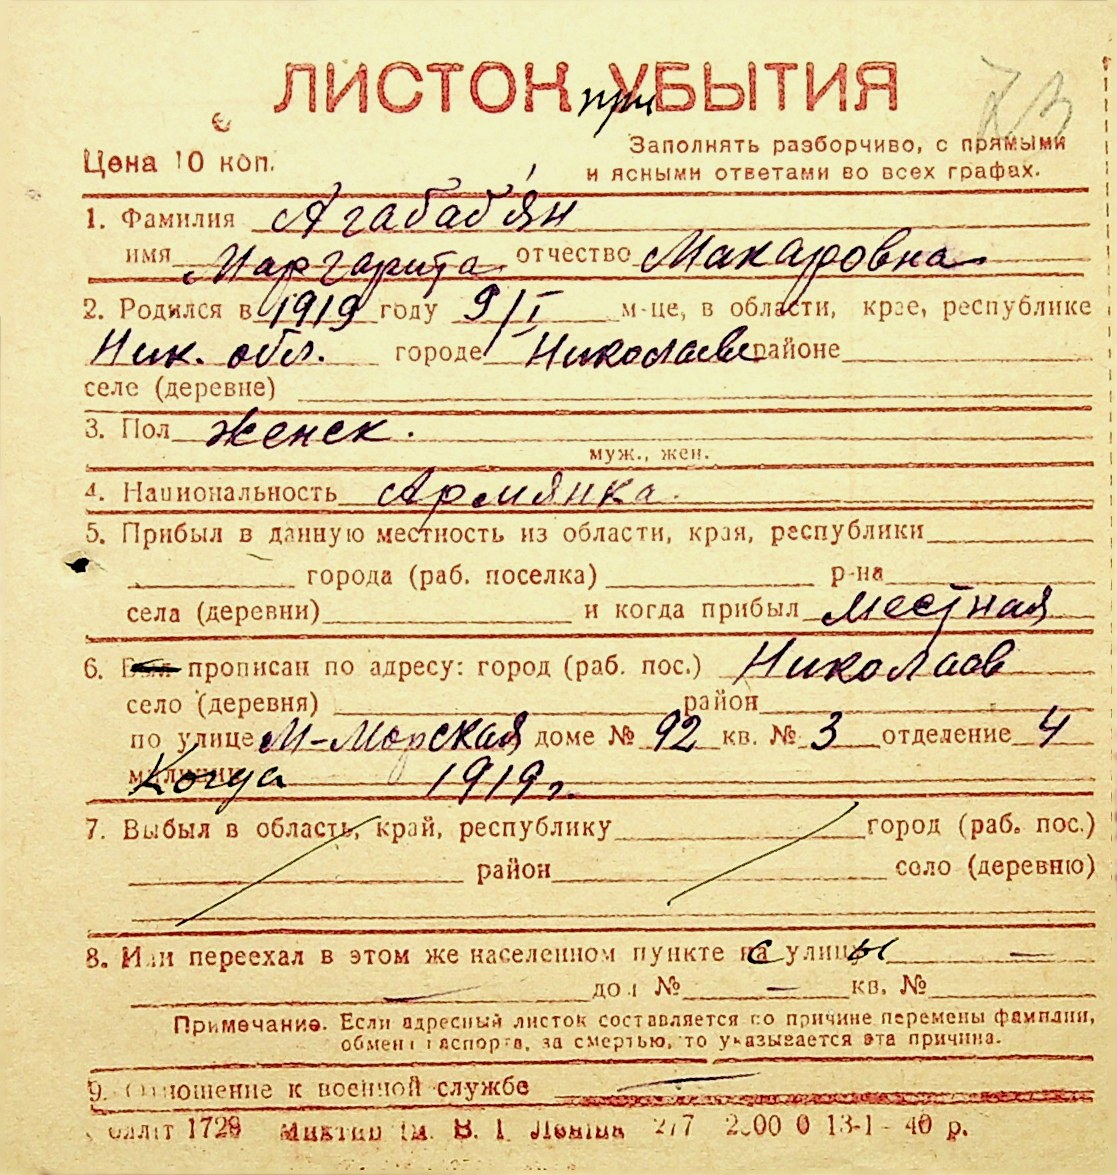 ЛИСТОК при УБЫТИЯ
73
Цена 10 коп.
Заполнять разборчиво, с прямыми
и ясными ответами во всех графах.
1. Фамилия Агабаб'ян
имя Маргарита отчество Макаровна
2. Родился в 1919 году 9/I м-це, в области, крае, республике
Ник. обл. городе Николаеве районе
селе (деревне)
3. Пол женск.
муж., жен.
4. Национальность Армянка.
5. Прибыл в данную местность из области, края, республики
города (раб. поселка) р-на
села (деревни) и когда прибыл местная
6. Был прописан по адресу: город (раб. пос.) Николаев
село (деревня) район
по улице М-Морская доме № 92 кв. № 3 отделение 4
милиции Когда 1919 г.
7. Выбыл в область, край, республику город (раб. пос.)
район село (деревню)
8. Или переехал в этом же населенном пункте с улицы —
— дом № — кв. №
Примечание. Если адресный листок составляется по причине перемены фамилии,
обмена паспорта, за смертью, то указывается эта причина.
9. Отношение к военной службе —
1729 им. В. І. Леніна 277 13-1 - 40 р.